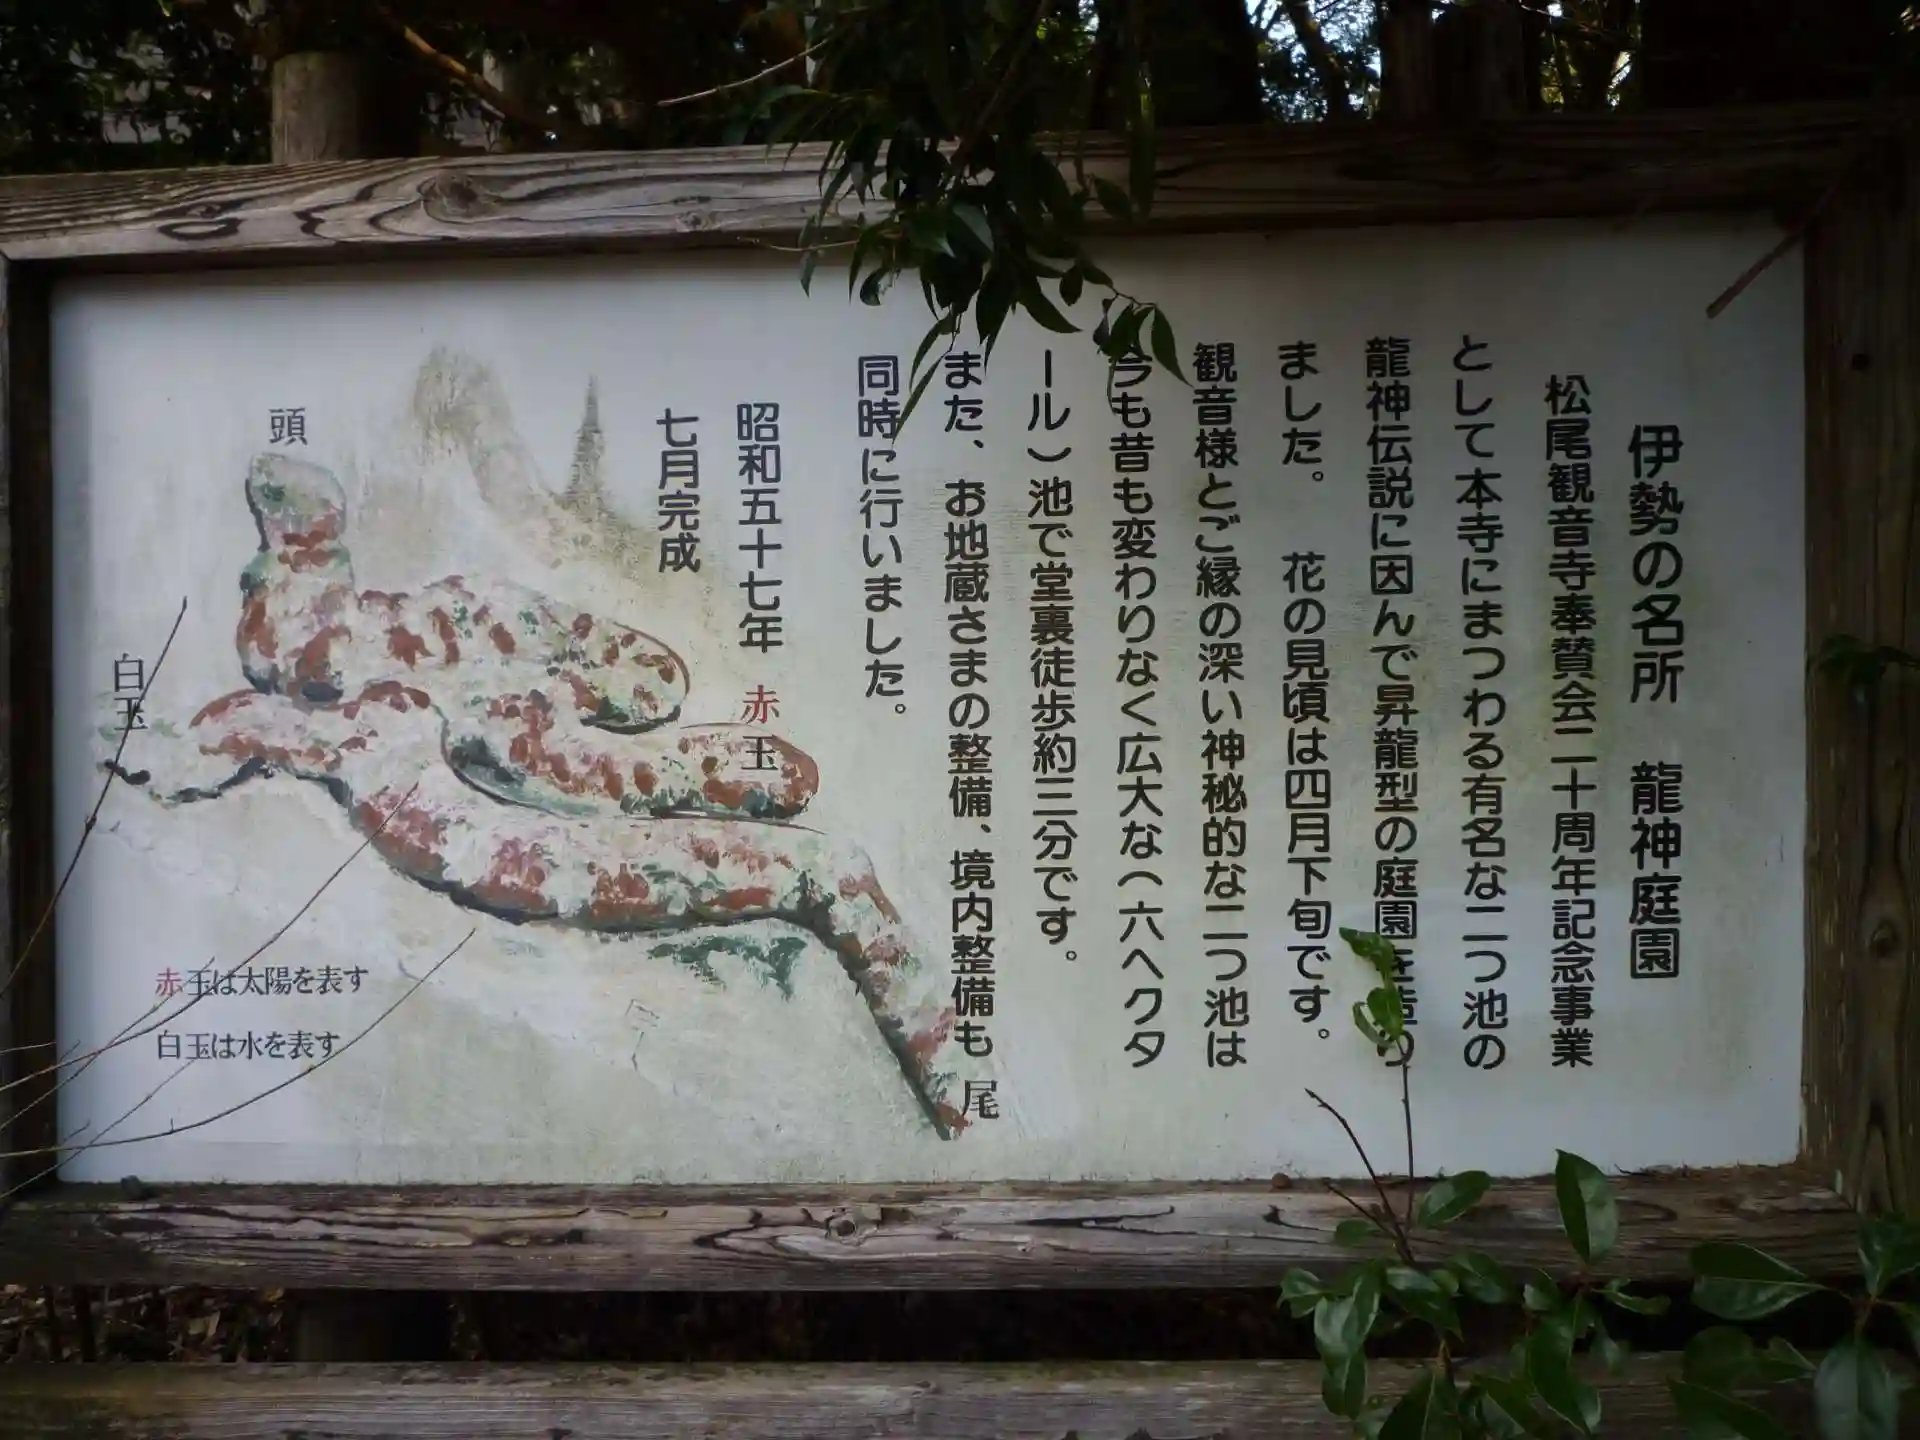 伊勢の名所 龍神庭園
松尾観音寺奉賛会二十周年記念事業
として本寺にまつわる有名な二つ池の
龍神伝説に因んで昇龍型の庭園を造り
ました。 花の見頃は四月下旬です。
観音様とご縁の深い神秘的な二つ池は
今も昔も変わりなく広大な(六ヘクタ
ール)池で堂裏徒歩約三分です。
また、お地蔵さまの整備、境内整備も
同時に行いました。
昭和五十七年
七月完成
赤玉
頭
白玉
尾
赤玉は太陽を表す
白玉は水を表す